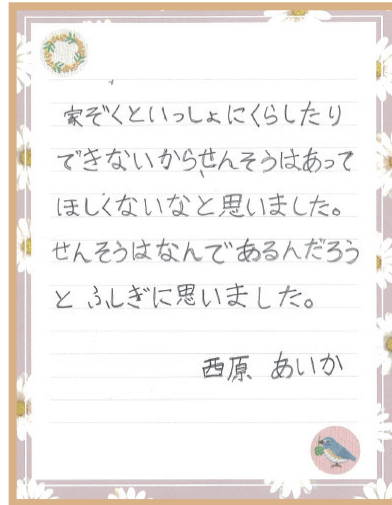 家ぞくといっしょにくらしたり
できないからせんそうはあって
ほしくないなと思いました。
せんそうはなんであるんだろう
とふしぎに思いました。
西原 あいか